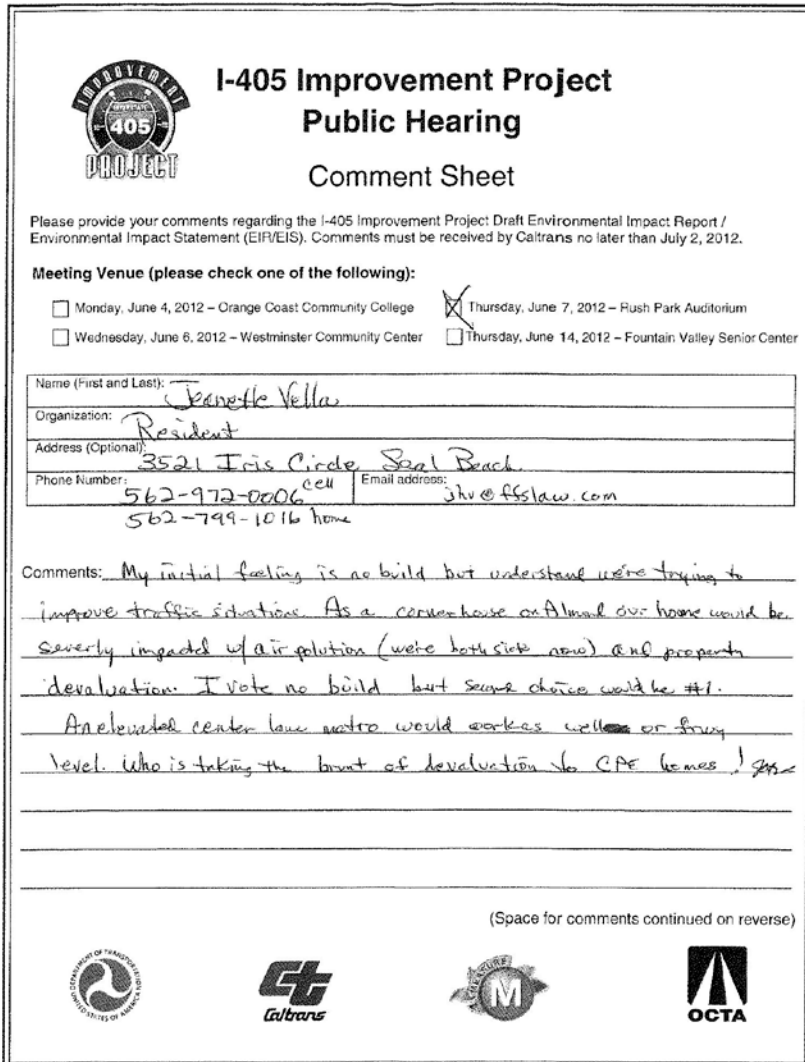 IMPROVEMENT
INTERSTATE
405
PROJECT
I-405 Improvement Project
Public Hearing
Comment Sheet
Please provide your comments regarding the I-405 Improvement Project Draft Environmental Impact Report /
Environmental Impact Statement (EIR/EIS). Comments must be received by Caltrans no later than July 2, 2012.
Meeting Venue (please check one of the following):
Monday, June 4, 2012 – Orange Coast Community College
Thursday, June 7, 2012 – Rush Park Auditorium
Wednesday, June 6, 2012 – Westminster Community Center
Thursday, June 14, 2012 – Fountain Valley Senior Center
Name (First and Last): Jeanette Vella
Organization: Resident
Address (Optional): 3521 Iris Circle Seal Beach
Phone Number: 562-972-0006 cell
Email address: jhv@ffslaw.com
562-799-1016 home
Comments: My initial feeling is no build but understand we're trying to
improve traffic situations. As a corner house on Almond our home would be
severly impacted w/ air polution (we're both sick now) and property
devaluation. I vote no build but second choice would be #1.
An elevated center lane metro would work as well or frwy
level. Who is taking the brunt of devaluation to CPE homes!
(Space for comments continued on reverse)
DEPARTMENT OF TRANSPORTATION
UNITED STATES OF AMERICA
Caltrans
MEASURE
M
OCTA